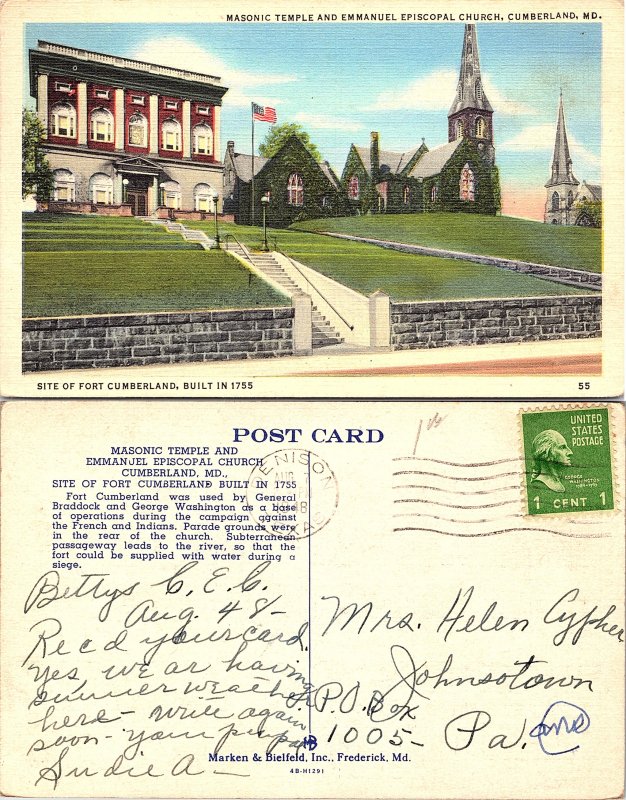 MASONIC TEMPLE AND EMMANUEL EPISCOPAL CHURCH, CUMBERLAND, MD.
SITE OF FORT CUMBERLAND, BUILT IN 1755
55
POST CARD
MASONIC TEMPLE AND
EMMANUEL EPISCOPAL CHURCH
CUMBERLAND, MD.,
SITE OF FORT CUMBERLAND BUILT IN 1755
Fort Cumberland was used by General
Braddock and George Washington as a base
of operations during the campaign against
the French and Indians. Parade grounds were
in the rear of the church. Subterranean
passageway leads to the river, so that the
fort could be supplied with water during a
siege.
UNITED
STATES
POSTAGE
1 CENT 1
Bettys C.E.C.
Aug. 48-
Recd your card.
Yes, we ar having
summer weather
here - write again
soon - your pen pal
Sudie A-
Mrs. Helen Cypher
Johnsotown
P.O. Box
1005- Pa.
ans
Marken & Bielfeld, Inc., Frederick, Md.
4B-H1291